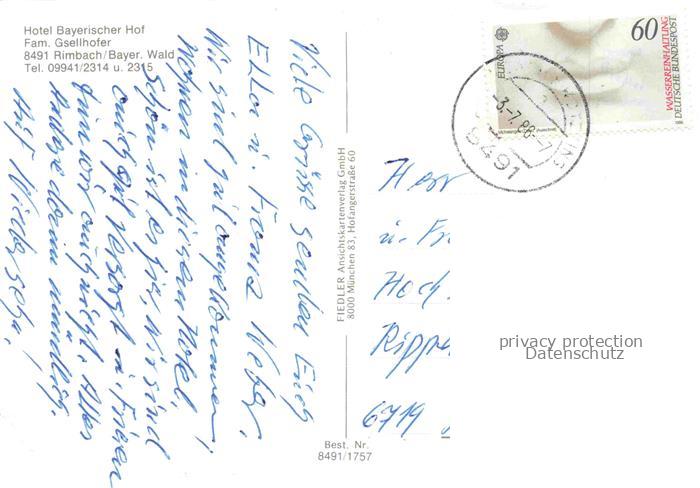 Hotel Bayerischer Hof
Fam. Gsellhofer
8491 Rimbach/Bayer. Wald
Tel. 09941/2314 u. 2315
Viele Grüße senden Euch
Ella u. Franz Weber.
Wir sind gut angekommen,
Wohnen in diesem Hotel.
Schön ist es hier, Wir sind
auch gut versorgt u.
Auf Wiedersehn.
FIEDLER Ansichtskartenverlag GmbH
8000 München 83, Hofangerstraße 60
Best. Nr.
8491/1757
EUROPA
60
WASSERREINHALTUNG
DEUTSCHE BUNDESPOST
-3.-7.86.-7
8491
Herr
u. Fr
Hoch.
Rippe
6719
privacy protection
Datenschutz